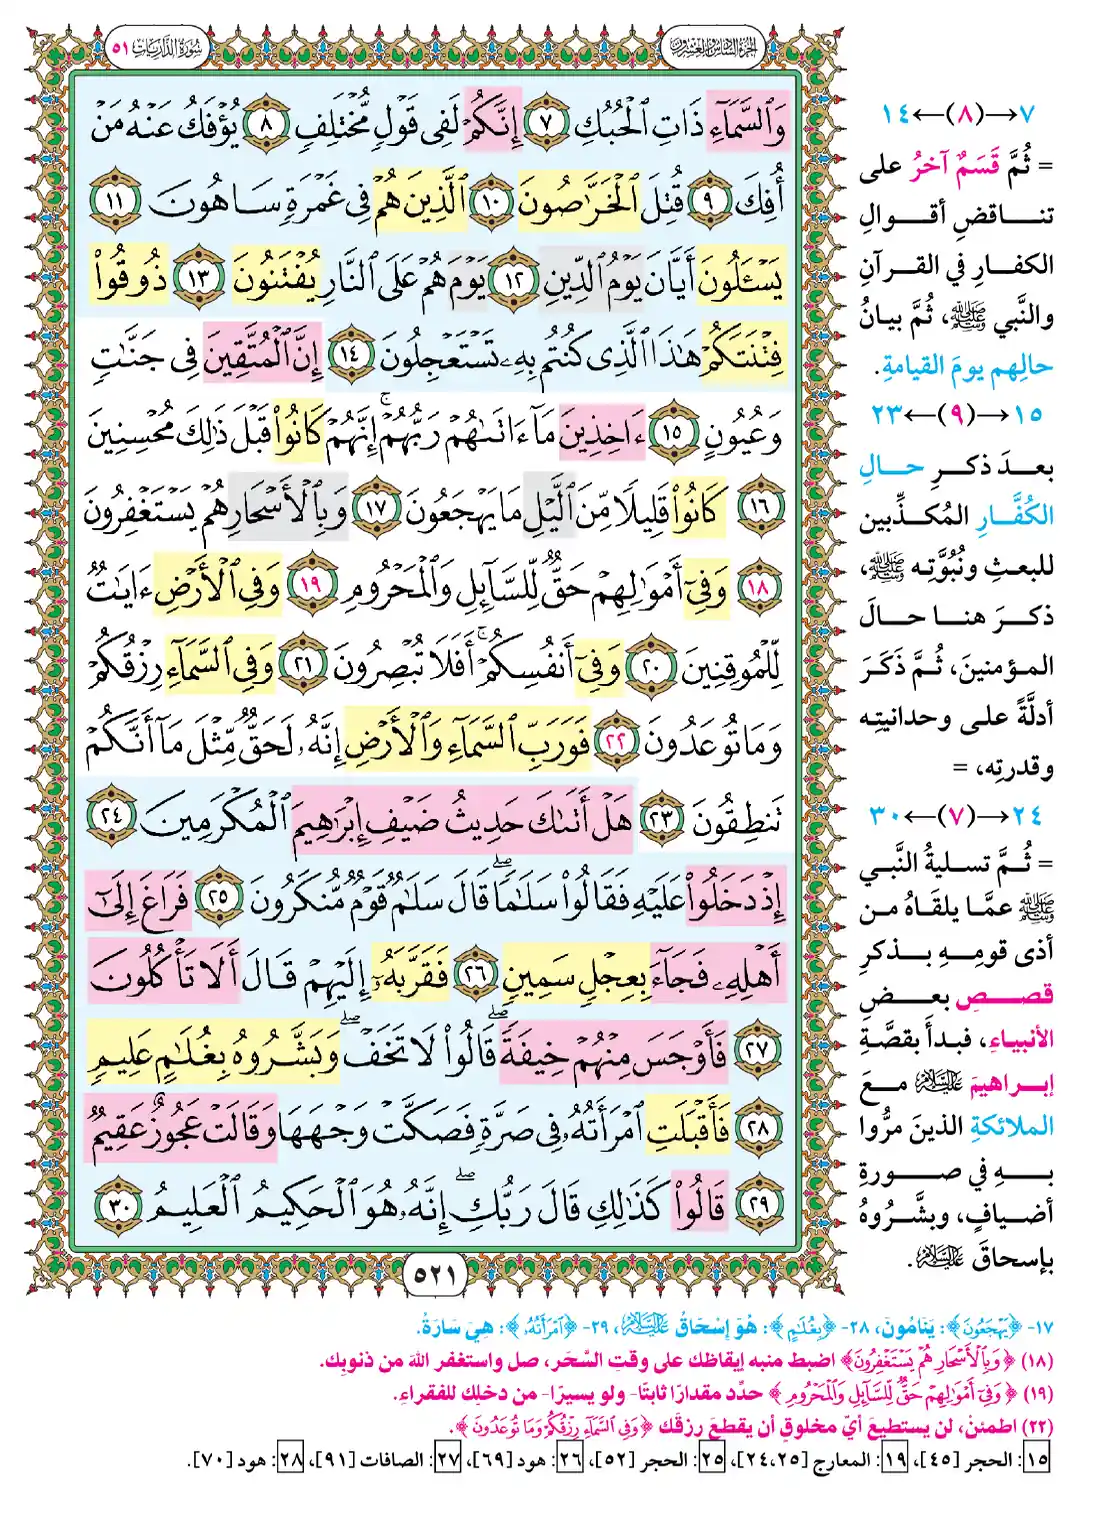 الجزء السادس والعشرون
سورة الذاريات ٥١
وَٱلسَّمَآءِ ذَاتِ ٱلْحُبُكِ ٧ إِنَّكُمْ لَفِى قَوْلٍ مُّخْتَلِفٍ ٨ يُؤْفَكُ عَنْهُ مَنْ
أُفِكَ ٩ قُتِلَ ٱلْخَرَّٰصُونَ ١٠ ٱلَّذِينَ هُمْ فِى غَمْرَةٍ سَاهُونَ ١١
يَسْـَٔلُونَ أَيَّانَ يَوْمُ ٱلدِّينِ ١٢ يَوْمَ هُمْ عَلَى ٱلنَّارِ يُفْتَنُونَ ١٣ ذُوقُوا۟
فِتْنَتَكُمْ هَٰذَا ٱلَّذِى كُنتُم بِهِۦ تَسْتَعْجِلُونَ ١٤ إِنَّ ٱلْمُتَّقِينَ فِى جَنَّٰتٍ
وَعُيُونٍ ١٥ ءَاخِذِينَ مَآ ءَاتَىٰهُمْ رَبُّهُمْ ۚ إِنَّهُمْ كَانُوا۟ قَبْلَ ذَٰلِكَ مُحْسِنِينَ
١٦ كَانُوا۟ قَلِيلًا مِّنَ ٱلَّيْلِ مَا يَهْجَعُونَ ١٧ وَبِٱلْأَسْحَارِ هُمْ يَسْتَغْفِرُونَ
١٨ وَفِىٓ أَمْوَٰلِهِمْ حَقٌّ لِّلسَّآئِلِ وَٱلْمَحْرُومِ ١٩ وَفِى ٱلْأَرْضِ ءَايَٰتٌ
لِّلْمُوقِنِينَ ٢٠ وَفِىٓ أَنفُسِكُمْ ۚ أَفَلَا تُبْصِرُونَ ٢١ وَفِى ٱلسَّمَآءِ رِزْقُكُمْ
وَمَا تُوعَدُونَ ٢٢ فَوَرَبِّ ٱلسَّمَآءِ وَٱلْأَرْضِ إِنَّهُۥ لَحَقٌّ مِّثْلَ مَآ أَنَّكُمْ
تَنطِقُونَ ٢٣ هَلْ أَتَىٰكَ حَدِيثُ ضَيْفِ إِبْرَٰهِيمَ ٱلْمُكْرَمِينَ ٢٤
إِذْ دَخَلُوا۟ عَلَيْهِ فَقَالُوا۟ سَلَٰمًا ۖ قَالَ سَلَٰمٌ قَوْمٌ مُّنكَرُونَ ٢٥ فَرَاغَ إِلَىٰٓ
أَهْلِهِۦ فَجَآءَ بِعِجْلٍ سَمِينٍ ٢٦ فَقَرَّبَهُۥٓ إِلَيْهِمْ قَالَ أَلَا تَأْكُلُونَ
٢٧ فَأَوْجَسَ مِنْهُمْ خِيفَةً ۖ قَالُوا۟ لَا تَخَفْ ۖ وَبَشَّرُوهُ بِغُلَٰمٍ عَلِيمٍ
٢٨ فَأَقْبَلَتِ ٱمْرَأَتُهُۥ فِى صَرَّةٍ فَصَكَّتْ وَجْهَهَا وَقَالَتْ عَجُوزٌ عَقِيمٌ
٢٩ قَالُوا۟ كَذَٰلِكِ قَالَ رَبُّكِ ۖ إِنَّهُۥ هُوَ ٱلْحَكِيمُ ٱلْعَلِيمُ ٣٠
٥٢١
٧→(٨)←١٤
= ثُمَّ قَسَمٌ آخرُ على
تناقضِ أقوالِ
الكفارِ في القرآنِ
والنَّبي ﷺ، ثُمَّ بيانُ
حالِهم يومَ القيامةِ.
١٥→(٩)←٢٣
بعدَ ذكرِ حالِ
الكُفَّارِ المُكذِّبين
للبعثِ ونُبُوَّتِه ﷺ،
ذكرَ هنا حالَ
المؤمنينَ، ثُمَّ ذَكَرَ
أدلَّةً على وحدانيتِه
وقدرتِه، =
٢٤→(٧)←٣٠
= ثُمَّ تسليةُ النَّبي
ﷺ عمَّا يلقَاهُ من
أذى قومِهِ بذكرِ
قصصِ بعضِ
الأنبياءِ، فبدأَ بقصَّةِ
إبراهيمَ عليه السلام معَ
الملائكةِ الذينَ مرُّوا
بهِ في صورةِ
أضيافٍ، وبشَّروهُ
بإسحاقَ عليه السلام.
١٧- ﴿يَهْجَعُونَ﴾: يَنَامُونَ، ٢٨- ﴿بِغُلَٰمٍ﴾: هُوَ إِسْحَاقُ عليه السلام، ٢٩- ﴿ٱمْرَأَتُهُۥ﴾: هِيَ سَارَةُ.
(١٨) ﴿وَبِٱلْأَسْحَارِ هُمْ يَسْتَغْفِرُونَ﴾ اضبط منبه إيقاظك على وقتِ السَّحَر، صل واستغفر اللهَ من ذنوبِك.
(١٩) ﴿وَفِىٓ أَمْوَٰلِهِمْ حَقٌّ لِّلسَّآئِلِ وَٱلْمَحْرُومِ﴾ حدِّد مقدارًا ثابتًا- ولو يسيرًا- من دخلِك للفقراءِ.
(٢٢) اطمئن، لن يستطيعَ أيّ مخلوقٍ أن يقطعَ رزقَك ﴿وَفِى ٱلسَّمَآءِ رِزْقُكُمْ وَمَا تُوعَدُونَ﴾.
١٥: الحجر [٤٥]، ١٩: المعارج [٢٤،٢٥]، ٢٥: الحجر [٥٢]، ٢٦: هود [٦٩]، ٢٧: الصافات [٩١]، ٢٨: هود [٧٠].